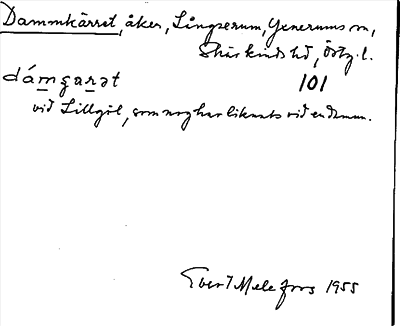 Dammkärret, åker, Långserum, Yxnerums sn,
Skärkinds hd, Östg. l.
dámʂarət 101
vid Lillgöl, som nog har liknats vid en damm.
Evert Melefors 1955